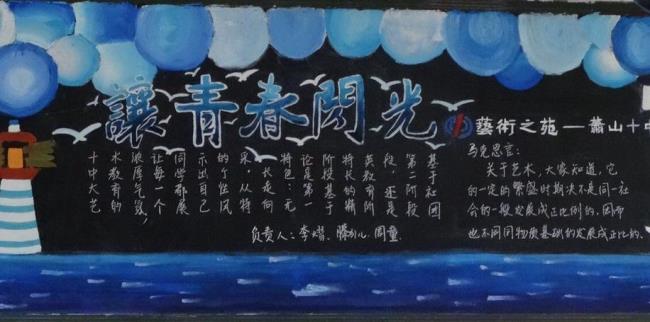 讓青春閃光
藝術之苑—蕭山十中
十中大艺
术教育的
浓厚气氛,
让每一个
同学都展
示出自己
的个性风
采,从特
长走向
特色:无
论是第一
阶段基于
特长的精
英教育阶
段,还是
第二阶段
基于社团
负责人:李
周童
马克思言:
关于艺术,大家知道,它
的一定的繁盛时期决不是同社
会的一般发展成正比例的,因而
也不同同物质基础的发展成正比的。